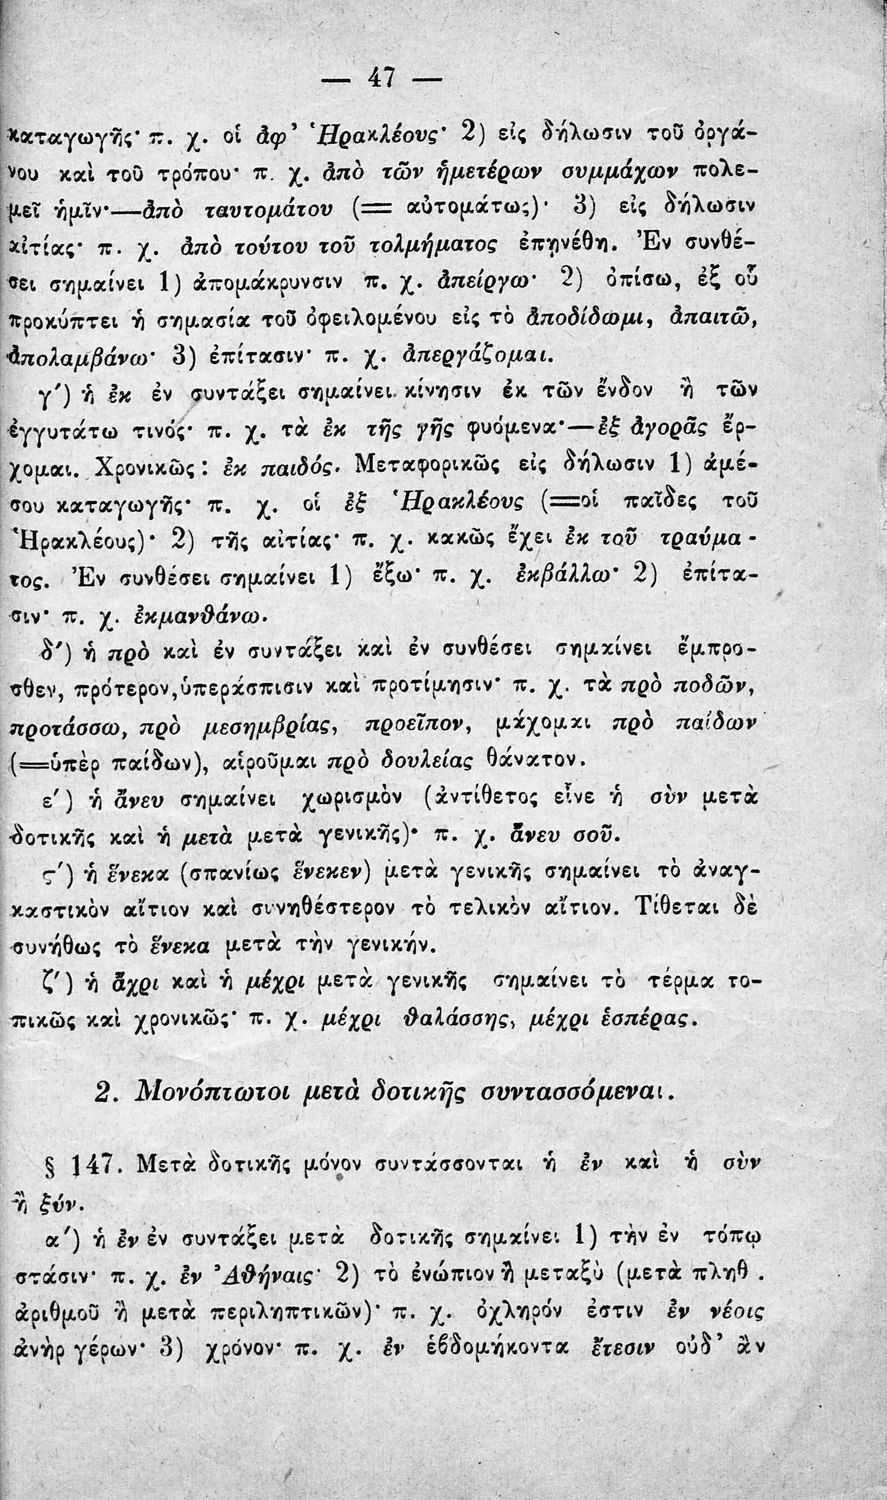 — 47 —
καταγωγῆς· π. χ. οἱ ἀφ’ Ἡρακλέους· 2) εἰς δήλωσιν τοῦ ὀργά-
νου καὶ τοῦ τρόπου· π. χ. ἀπὸ τῶν ἡμετέρων συμμάχων πολε-
μεῖ ἡμῖν·—ἀπὸ ταυτομάτου (= αὐτομάτως)· 3) εἰς δήλωσιν
αἰτίας· π. χ. ἀπὸ τούτου τοῦ τολμήματος ἐπῃνέθη. Ἐν συνθέ-
σει σημαίνει 1) ἀπομάκρυνσιν π. χ. ἀπείργω· 2) ὀπίσω, ἐξ οὗ
προκύπτει ἡ σημασία τοῦ ὀφειλομένου εἰς τὸ ἀποδίδωμι, ἀπαιτῶ,
ἀπολαμβάνω· 3) ἐπίτασιν· π. χ. ἀπεργάζομαι.
γ′) ἡ ἐκ ἐν συντάξει σημαίνει κίνησιν ἐκ τῶν ἔνδον ἢ τῶν
ἐγγυτάτω τινός· π. χ. τὰ ἐκ τῆς γῆς φυόμενα·—ἐξ ἀγορᾶς ἔρ-
χομαι. Χρονικῶς: ἐκ παιδός. Μεταφορικῶς εἰς δήλωσιν 1) ἀμέ-
σου καταγωγῆς· π. χ. οἱ ἐξ Ἡρακλέους (=οἱ παῖδες τοῦ
Ἡρακλέους)· 2) τῆς αἰτίας· π. χ. κακῶς ἔχει ἐκ τοῦ τραύμα-
τος. Ἐν συνθέσει σημαίνει 1) ἔξω· π. χ. ἐκβάλλω· 2) ἐπίτα-
σιν· π. χ. ἐκμανθάνω.
δ′) ἡ πρὸ καὶ ἐν συντάξει καὶ ἐν συνθέσει σημαίνει ἔμπρο-
σθεν, πρότερον, ὑπεράσπισιν καὶ προτίμησιν· π. χ. τὰ πρὸ ποδῶν,
προτάσσω, πρὸ μεσημβρίας, προεῖπον, μάχομαι πρὸ παίδων
(=ὑπὲρ παίδων), αἱροῦμαι πρὸ δουλείας θάνατον.
ε′) ἡ ἄνευ σημαίνει χωρισμὸν (ἀντίθετος εἶνε ἡ σὺν μετὰ
δοτικῆς καὶ ἡ μετὰ μετὰ γενικῆς)· π. χ. ἄνευ σοῦ.
ϛ′) ἡ ἕνεκα (σπανίως ἕνεκεν) μετὰ γενικῆς σημαίνει τὸ ἀναγ-
καστικὸν αἴτιον καὶ συνηθέστερον τὸ τελικὸν αἴτιον. Τίθεται δὲ
συνήθως τὸ ἕνεκα μετὰ τὴν γενικήν.
ζ′) ἡ ἄχρι καὶ ἡ μέχρι μετὰ γενικῆς σημαίνει τὸ τέρμα το-
πικῶς καὶ χρονικῶς· π. χ. μέχρι θαλάσσης, μέχρι ἑσπέρας.
2. Μονόπτωτοι μετὰ δοτικῆς συντασσόμεναι.
§ 147. Μετὰ δοτικῆς μόνον συντάσσονται ἡ ἐν καὶ ἡ σὺν
ἢ ξύν.
α′) ἡ ἐν ἐν συντάξει μετὰ δοτικῆς σημαίνει 1) τὴν ἐν τόπῳ
στάσιν· π. χ. ἐν Ἀθήναις· 2) τὸ ἐνώπιον ἢ μεταξὺ (μετὰ πληθ.
ἀριθμοῦ ἢ μετὰ περιληπτικῶν)· π. χ. ὀχληρόν ἐστιν ἐν νέοις
ἀνὴρ γέρων· 3) χρόνον· π. χ. ἐν ἑβδομήκοντα ἔτεσιν οὐδ’ ἂν